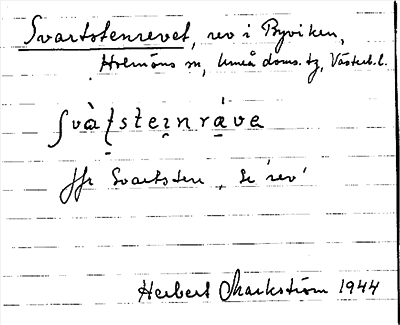 Svartstenrevet, rev i Byviken,
Holmöns sn, Umeå doms. tg, Västerb. l.
ʃvàʈsteɪnráve
Jfr Svartsten, Se 'rev'
Herbert Markström 1944